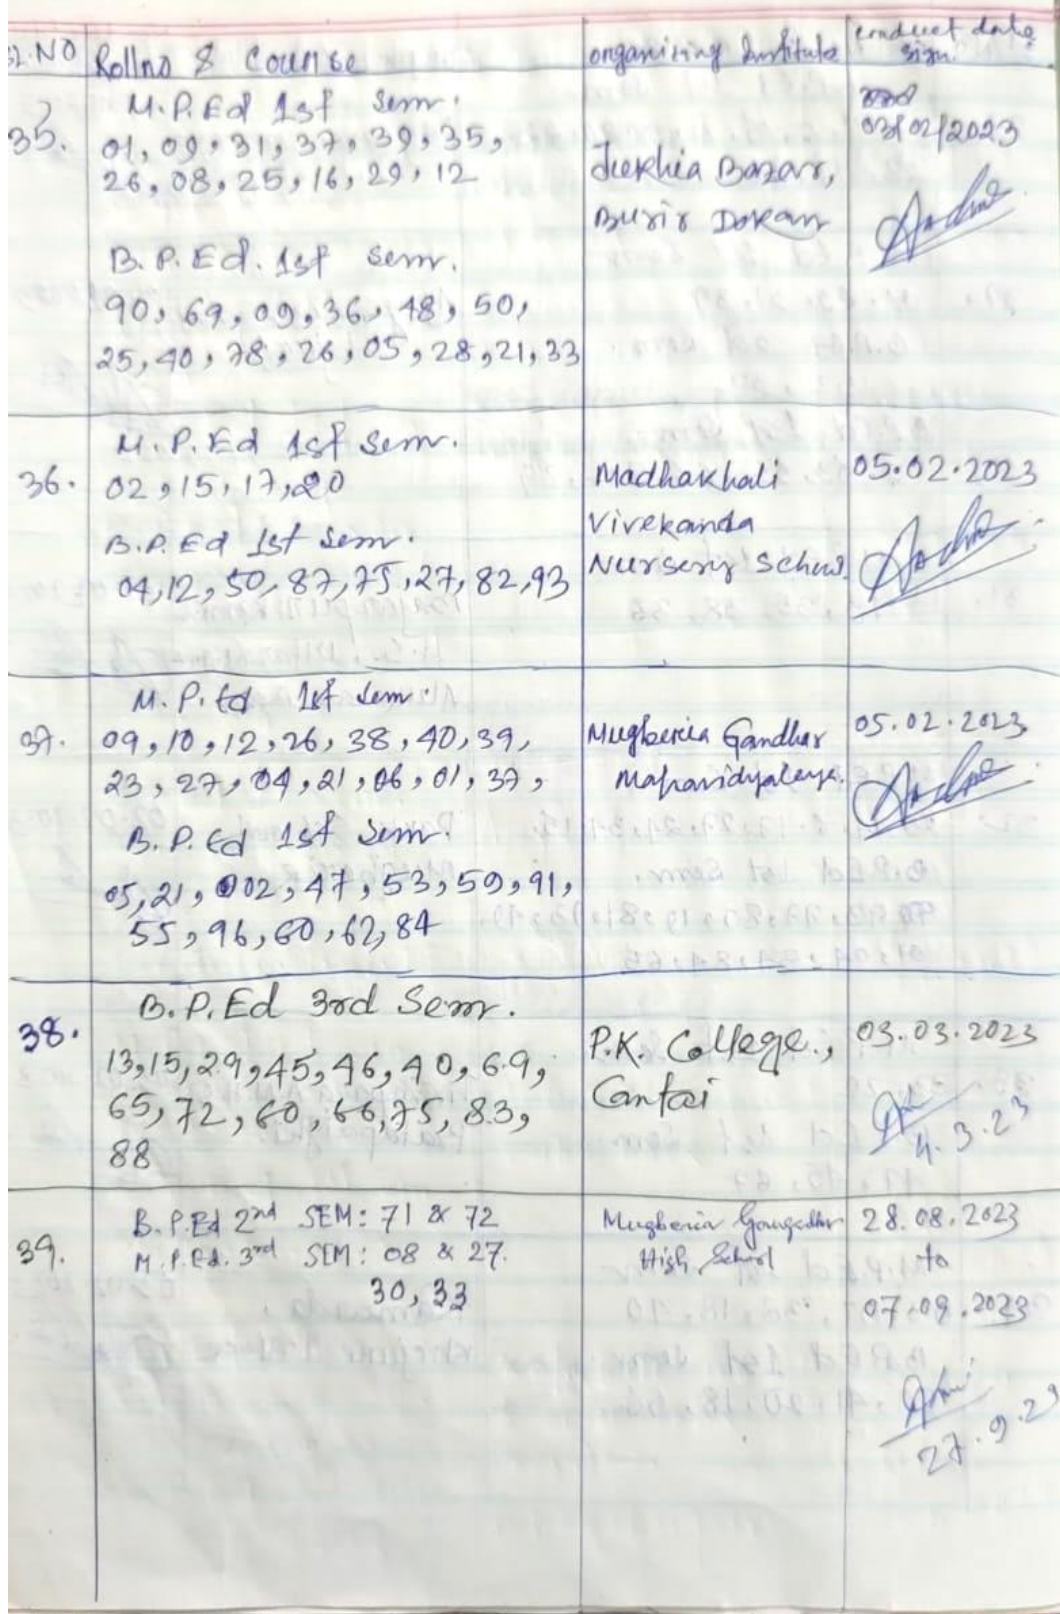 Sl.NO Rollno & Course organising Institute conduct date sign.
35. M.P.Ed 1st Sem.
01, 09, 31, 37, 39, 35,
26, 08, 25, 16, 29, 12
B.P.Ed. 1st Sem.
90, 69, 09, 36, 48, 50,
25, 40, 78, 26, 05, 28, 21, 33
Bazar,
Burir Dokan
03/02/2023
36. M.P.Ed 1st Sem.
02, 15, 17, 20
B.P.Ed 1st Sem.
04, 12, 50, 87, 75, 27, 82, 93
Madhakhali
Vivekanda
Nursery School
05.02.2023
37. M.P.Ed 1st Sem.
09, 10, 12, 26, 38, 40, 39,
23, 27, 04, 21, 06, 01, 37,
B.P.Ed 1st Sem.
05, 21, 02, 47, 53, 59, 91,
55, 96, 60, 62, 84
Mugberia Gandhar
Mahavidyalaya.
05.02.2023
38. B.P.Ed 3rd Sem.
13, 15, 29, 45, 46, 40, 69,
65, 72, 60, 66, 75, 83,
88
P.K. College.,
Contai
03.03.2023
4.3.23
39. B.P.Ed 2nd SEM: 71 & 72
M.P.Ed. 3rd SEM: 08 & 27.
30, 33
Mugberia Gangadhar
High School
28.08.2023
to
07.09.2023
27.9.23